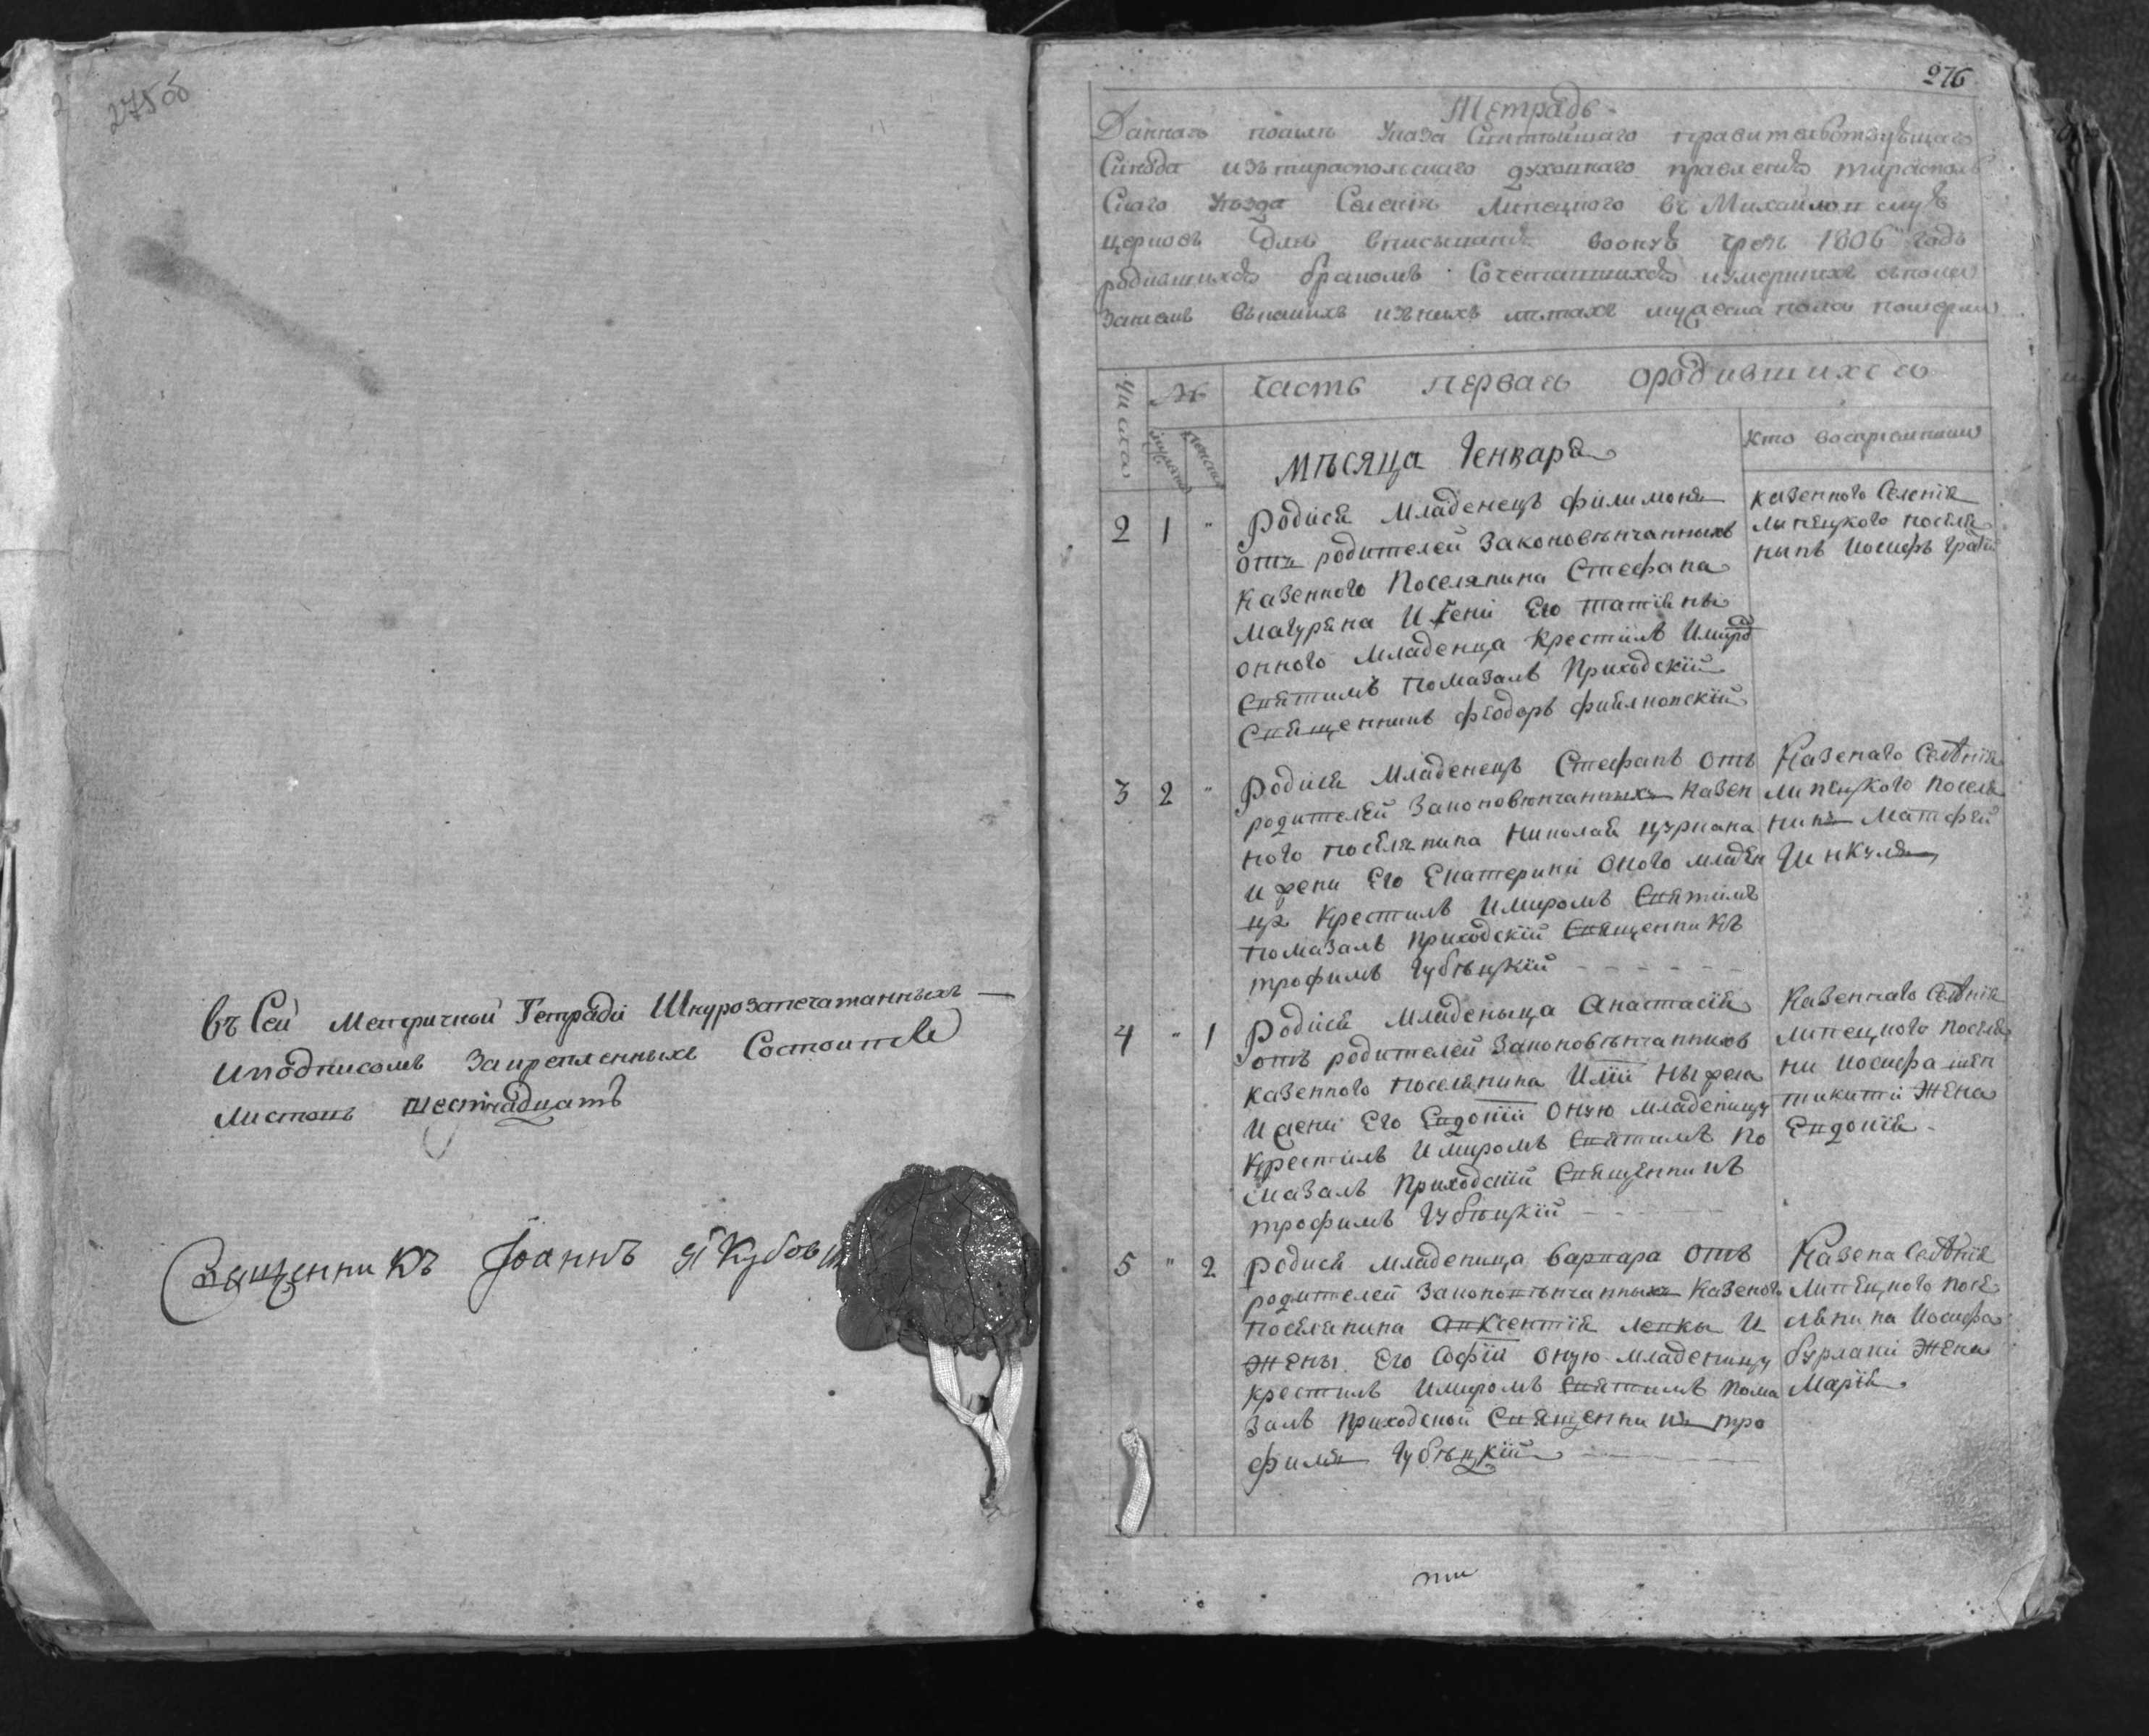 275об
въ Сей Метричной Тетради Шнурозапечатанныхъ
иподписомъ Закрепленныхъ Состоитъ
листовъ шестнадцать
Священникъ Іоаннъ Якубов
276
Тетрадь
Данная посилѣ Указа Святѣйшаго правительствующаго
Синода изътираспольскаго духовнаго правленія тирасполь
Скаго уѣзда Селенія Липецкого въ Михайловскую
церковь для вписыванія вооную чрезъ 1806 годъ
родившихся бракомъ Сочетавшихся иумершихъ
числа
№
Часть первая ородившихся
мужеска
женска
Мѣсяца Генваря
кто восприемники
2 1 " Родися Младенецъ филимонъ
отъ родителей Законовѣнчанныхъ
казенного Поселянина Стефана
Магуряна И жени Его татіяны
онного Младенца Крестилъ Имиро
Святимъ помазалъ Приходскій
Священникъ феодоръ
казенного Селенія
липецкого поселя
нынъ Иосифъ
3 2 " Родися Младенецъ Стефанъ отъ
родителей Законовѣнчанныхъ казен
ного поселянина Николая цуркана
и жени Его Екатерини Оного младен
ца Крестилъ Имиромъ Святимъ
помазалъ приходскій Священникъ
трофимъ Губѣцкій
Казенаго Селѣнія
липецкого поселя
нинъ Матфей
Гинкулъ
4 " 1 Родися младеныца Анастасія
отъ родителей Законовѣнчанныхъ
казенного поселянина Иліи
И жени Его Евдокіи Оную младеницу
Крестилъ Имиромъ Святимъ По
мазалъ Приходскій Священникъ
трофимъ Губѣцкій
Казеннаго Селѣнія
липецкого поселя
ни Иосифа
Жена
Евдокія
5 " 2 Родися младеница Варвара отъ
родителей Законовѣнчанныхъ Казеного
поселянина Авксентія левки И
Жены Его Софіи оную младеницу
крестилъ Имиромъ Святимъ пома
залъ приходской Священникъ тро
фимъ Губѣцкій
Казена Селѣнія
Липецкого посе
лянина Иосифа
бурлаки Жена
Марія